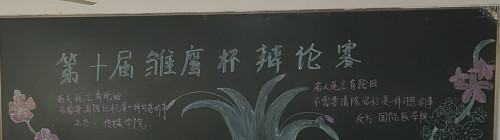 第十届雏鹰杯辩论赛
若人死亡有轮回
不需要清除记忆是一件可喜的事
正方：传媒学院
若人死亡有轮回
不需要清除记忆是一件可悲的事
反方：国际医学院